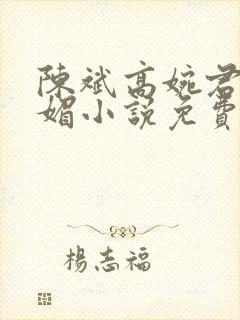 陳斌高婉君
媚小說免費
楊志福